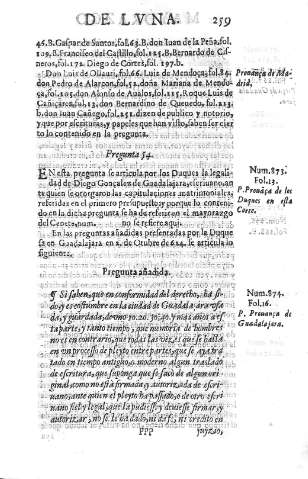 DE LVNA. 259
46. B. Gaspar de Santos, fol. 63. B. don Iuan de la Peña, fol.
109. B. Francisco del Castillo, fol. 125. B. Bernardo de Cis-
neros, fol. 172. Diego de Cortes, fol. 197. b.
Don Luis de Oliauri, fol. 66. Luis de Mendoça, fol. 84.
don Pedro de Alarcon, fol. 92. doña Mariana de Mendo-
ça, fol. 105. don Alonso de Aualos, fol. 115. Roque Luis de
Cañiçares, fol. 12. don Bernardino de Quenedo, fol. 123.
b. don Iuan Cañego, fol. 251. dizen de publico y notorio,
y que por escrituras, y papeles que han visto, saben ser cier
to lo contenido en la pregunta.
Prouança de Ma-
drid.
Pregunta 54.
EN esta pregunta se articula por los Duques la legali-
dad de Diego Gonçales de Guadalajara, escriuano, an-
te quien se otorgaron las capitulaciones matrimoniales,
referidas en el primero presupuesto; y porque lo conteni-
do en la dicha pregunta se ha de referir en el mayorazgo
del Conde, num. no se refiere aqui.
Num. 873.
Fol. 13.
P. Prouança de los
Duques en esta
Corte.
En las preguntas añadidas presentadas por la Duque
sa en Guadalajara en 2. de Octubre de 624. se articula lo
siguiente.
Pregunta añadida.
¶ Si saben, que en conformidad del derecho, ha si-
do, y es costumbre en la ciudad de Guadalajara vsa
da, y guardada, de vno 10. 20. 30. 40. y mas años a es
ta parte, y tanto tiempo, que memoria de hombres
no es en contrario, que todas las vezes que se halla
en vn processo de pleyto entre partes, que se aya tra
tado en tiempo antiguo, o moderno algun traslado
de escritura, que suponga que se sacò de algun ori-
ginal, como no està firmada y autorizada de escri-
uano, ante quien el pleyto ha passado, o de otro escri
uano fiel y legal, que la pudiesse y deuiesse firmar, y
autorizar, no se la ha dado, ni da fè, ni credito en
Num. 874.
Fol. 16.
P. Prouança de
Guadalajara.
PPP juyzio,